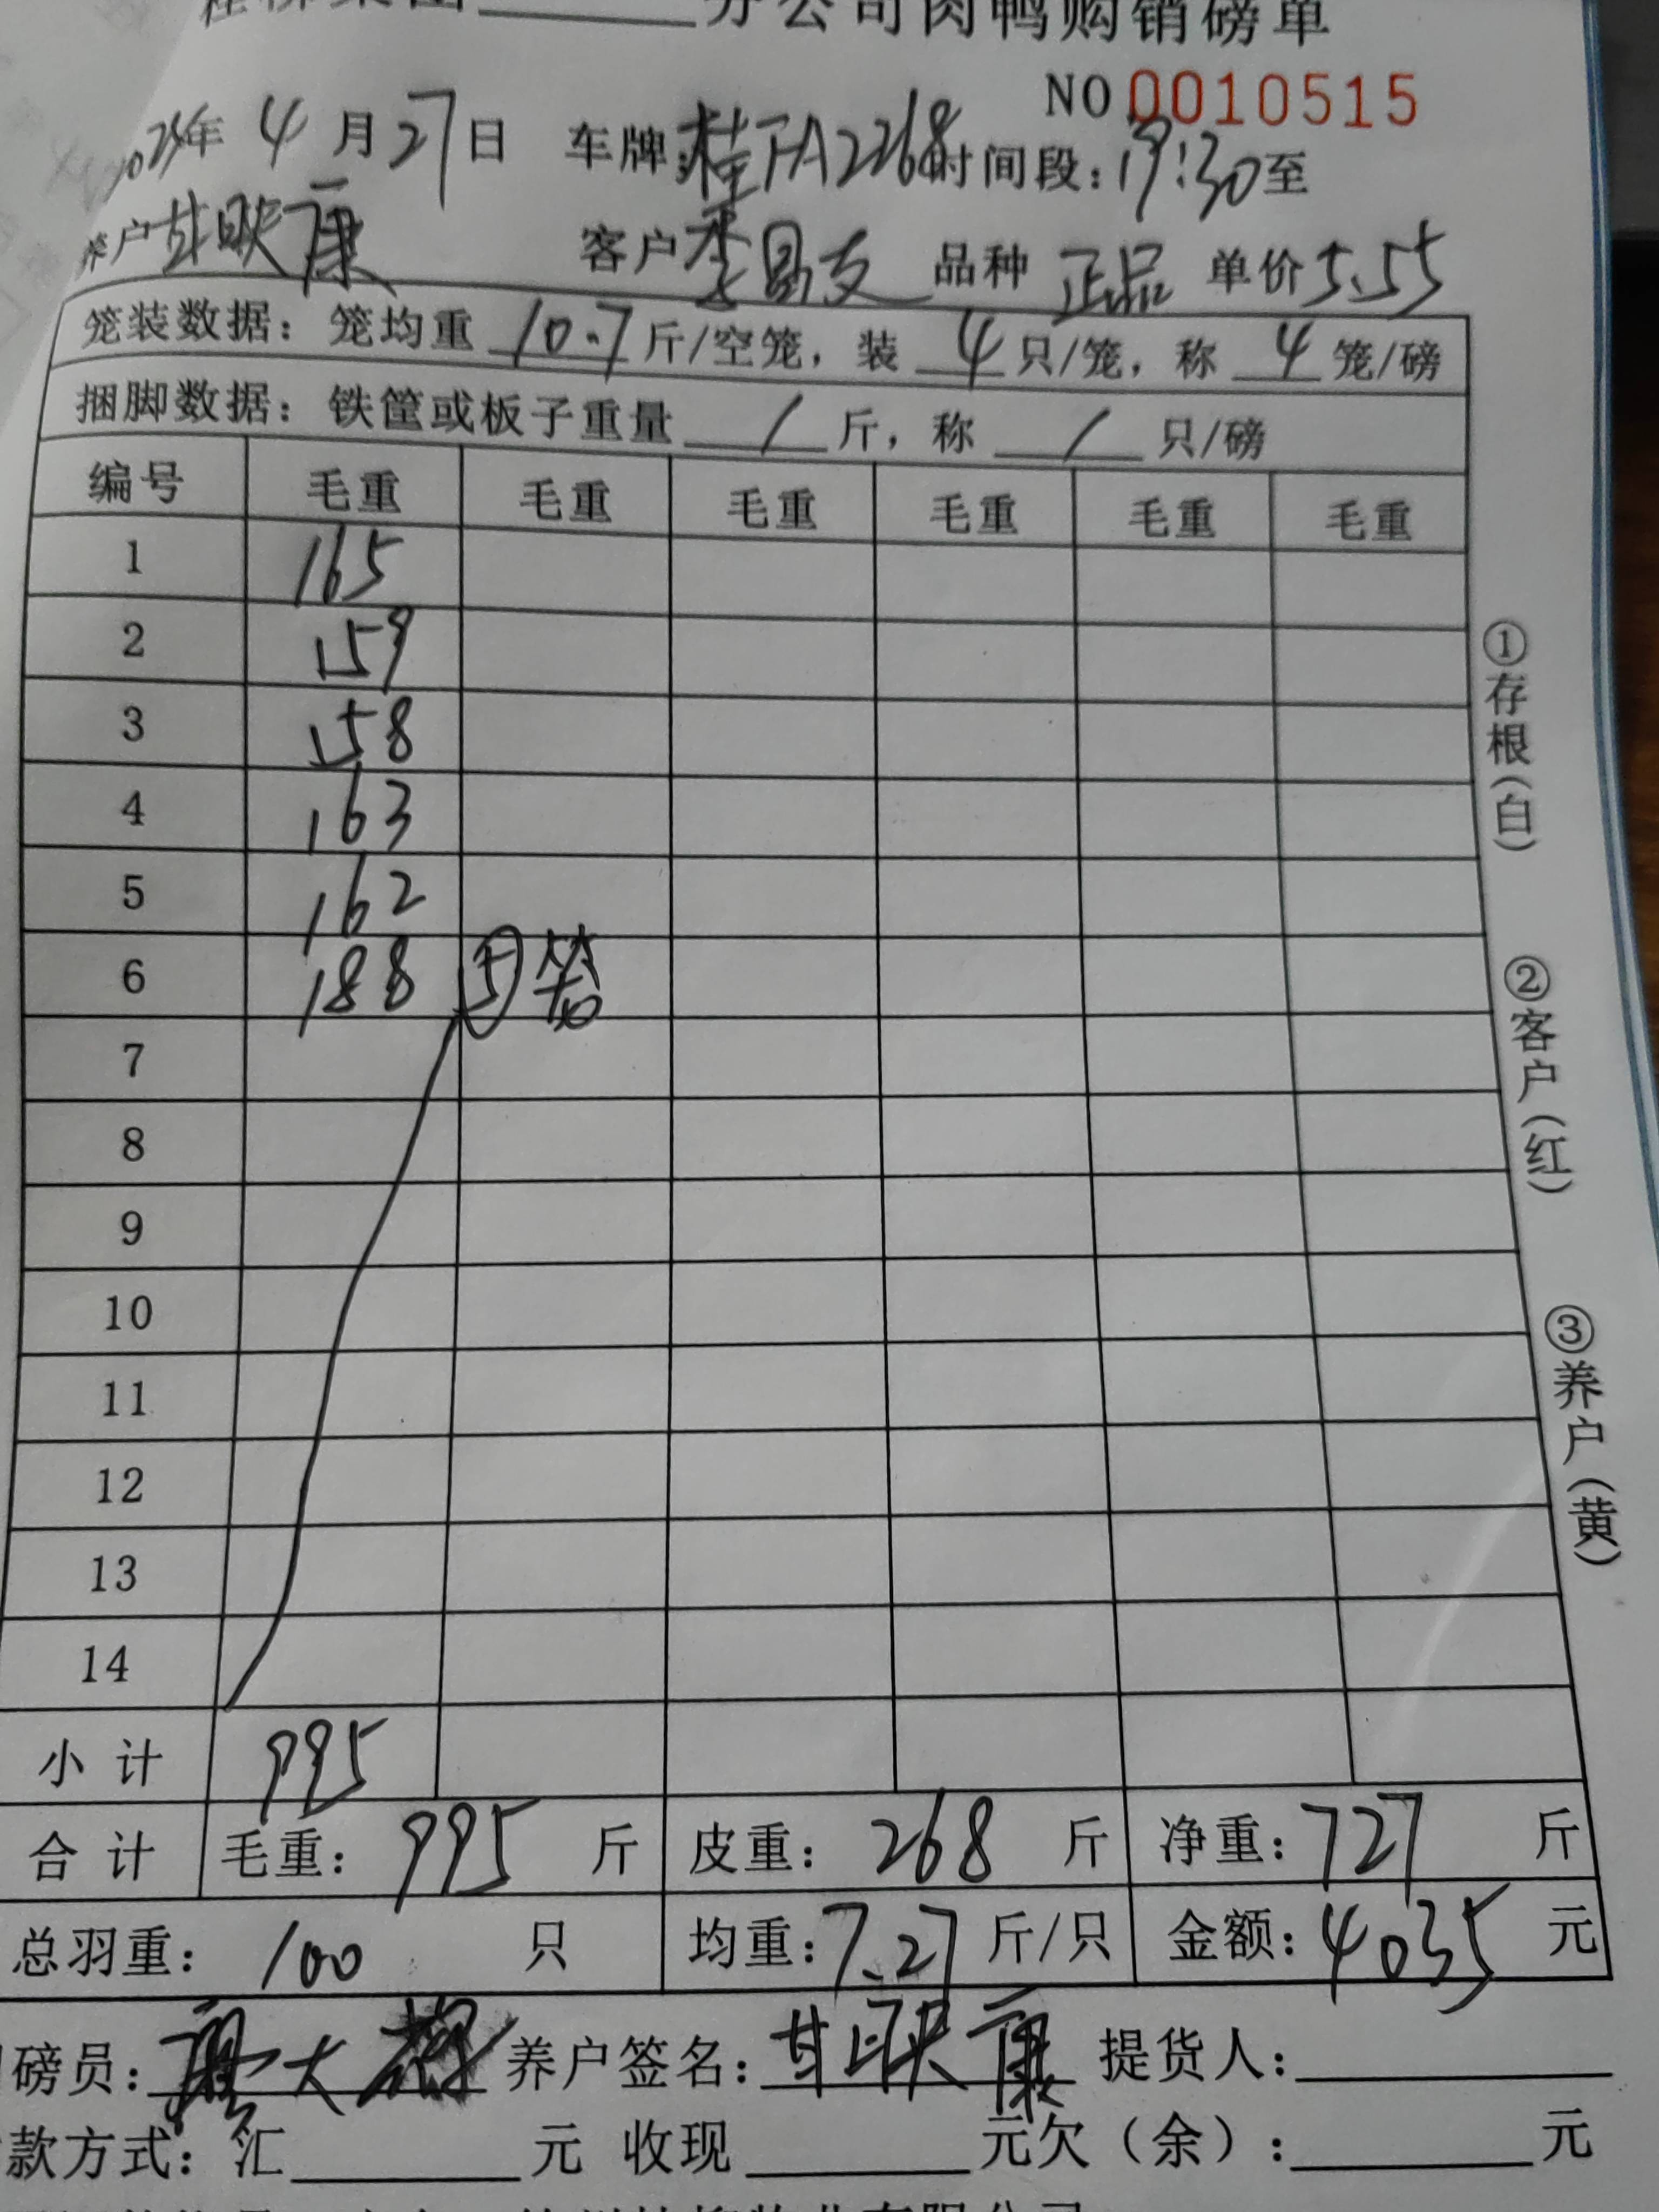 分公司肉鸭购销磅单
NO 0010515
2024年 4 月 27 日 车牌: 桂FA2268 时间段: 19:30 至
养户 甘映康 客户 李昌支 品种 正品 单价 5.55
笼装数据: 笼均重 10.7 斤/空笼, 装 4 只/笼, 称 4 笼/磅
捆脚数据: 铁筐或板子重量 / 斤, 称 / 只/磅
编号 毛重 毛重 毛重 毛重 毛重 毛重
1 165
2 159
3 158
4 163
5 162
6 188 ⑤笼
7
8
9
10
11
12
13
14
小计 995
合计 毛重: 995 斤 皮重: 268 斤 净重: 727 斤
总羽重: 100 只 均重: 7.27 斤/只 金额: 4035 元
磅员: 大 养户签名: 甘映康 提货人:
款方式: 汇 元 收现 元 欠(余): 元
①存根(白)
②客户(红)
③养户(黄)